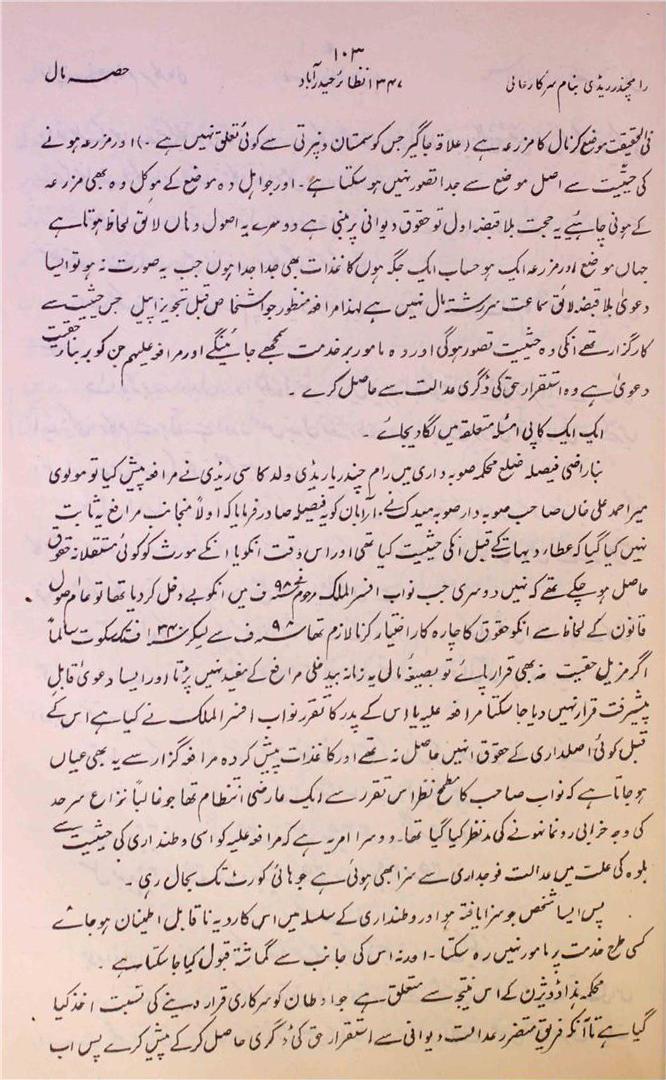 ۱۰۳
رامچندر ریڈی بنام سرکارعالی ۱۳۴۷ نظائر حیدرآباد حصہ مال
فی الحقیقت موضع کرنال کا مزرعہ ہے (علاقہ جاگیر جس کو سمستان ونپرتی سے کوئی تعلق نہیں ہے ۔) اور مزرعہ ہونے
کی حیثیت سے اصل موضع سے جدا تصور نہیں ہو سکتا ہے ۔ اور جو اہل دہ موضع کے ہوں گے وہ بھی مزرعہ
کے ہونی چاہئیے یہ حجت بلا قبضہ اول تو حقوق دیوانی پر مبنی ہے دوسرے یہ اصول وہاں لائق لحاظ ہوتا ہے
جہاں موضع اور مزرعہ ایک ہو حساب ایک جگہ ہوں کاغذات بھی جدا جدا ہوں جب یہ صورت نہ ہو تو ایسا
دعویٰ بلا قبضہ لائق سماعت سررشتہ مال نہیں ہے لہذا مرافعہ منظور جو اشخاص قبل تجویز اپیل جس حیثیت سے
کارگزار تھے انکی وہ حیثیت تصور ہوگی اور وہ مامور بر خدمت سمجھے جائینگے اور مرافعہ علیہم جن کو بر بناء حقیت
دعویٰ ہے وہ استقرار حق کی ڈگری عدالت سے حاصل کرے ۔
ایک ایک کاپی امثلہ متعلقہ میں لگا دیجائے ۔
بناراضی فیصلہ ضلع محکمہ صوبہ داری میں رام چندریا ریڈی ولد کاسی ریڈی نے مرافعہ پیش کیا تو مولوی
میر احمد علی خاں صاحب صوبہ دار صوبہ میدک نے آبان کو فیصلہ صادر فرمایا کہ اولاً منجانب مرافع یہ ثابت
نہیں کیا گیا کہ عطاء دیہات کے قبل انکی حیثیت کیا تھی اور اس وقت انکو یا انکے مورث کو کوئی مستقلانہ حقوق
حاصل ہو چکے تھے کہ نہیں دوسری جب نواب افسر الملک مرحوم نے ۹۸ ف میں انکو بے دخل کر دیا تھا تو عام اصول
قانون کے لحاظ سے انکو حقوق کا چارہ کار اختیار کرنا لازم تھا ۹۸ ف سے لیکر ۱۳۴۰ ف تک سکوت سالماً
اگر مزیل حقیت نہ بھی قرار پائے تو بصیغہ مال یہ زمانہ بیدخلی مرافع کے مفید نہیں پڑتا اور ایسا دعویٰ قابل
پیشرفت قرار نہیں دیا جا سکتا مرافعہ علیہ یا اس کے پدر کا تقرر نواب افسر الملک نے کیا ہے اس کے
قبل کوئی اصلداری کے حقوق انہیں حاصل نہ تھے اور کاغذات پیش کردہ مرافعہ گزار سے یہ بھی عیاں
ہو جاتا ہے کہ نواب صاحب کا مطمح نظر اس تقرر سے ایک عارضی انتظام تھا جو غالباً نزاع سرحد
کی وجہ خرابی رونما ہونے کی مدنظر کیا گیا تھا۔ دوسرا امر یہ ہے کہ مرافعہ علیہ کو اسی وطنداری کی حیثیت سے
بلوہ کی علت میں عدالت فوجداری سے سزا بھی ہوئی ہے جو ہائی کورٹ تک بحال رہی ۔
پس ایسا شخص جو سزا یافتہ ہو اور وطنداری کے سلسلہ میں اس کا رویہ ناقابل اطمینان ہو جائے
کسی طرح خدمت پر مامور نہیں رہ سکتا ۔ اور نہ اس کی جانب سے گماشتہ قبول کیا جا سکتا ہے ۔
محکمہ ہذا ڈویژن کے اس نتیجہ سے متعلق ہے جو اوطان کو سرکاری قرار دینے کی نسبت اخذ کیا
گیا ہے تا آنکہ فریق متضرر عدالت دیوانی سے استقرار حق کی ڈگری حاصل کر کے پیش کرے پس اب